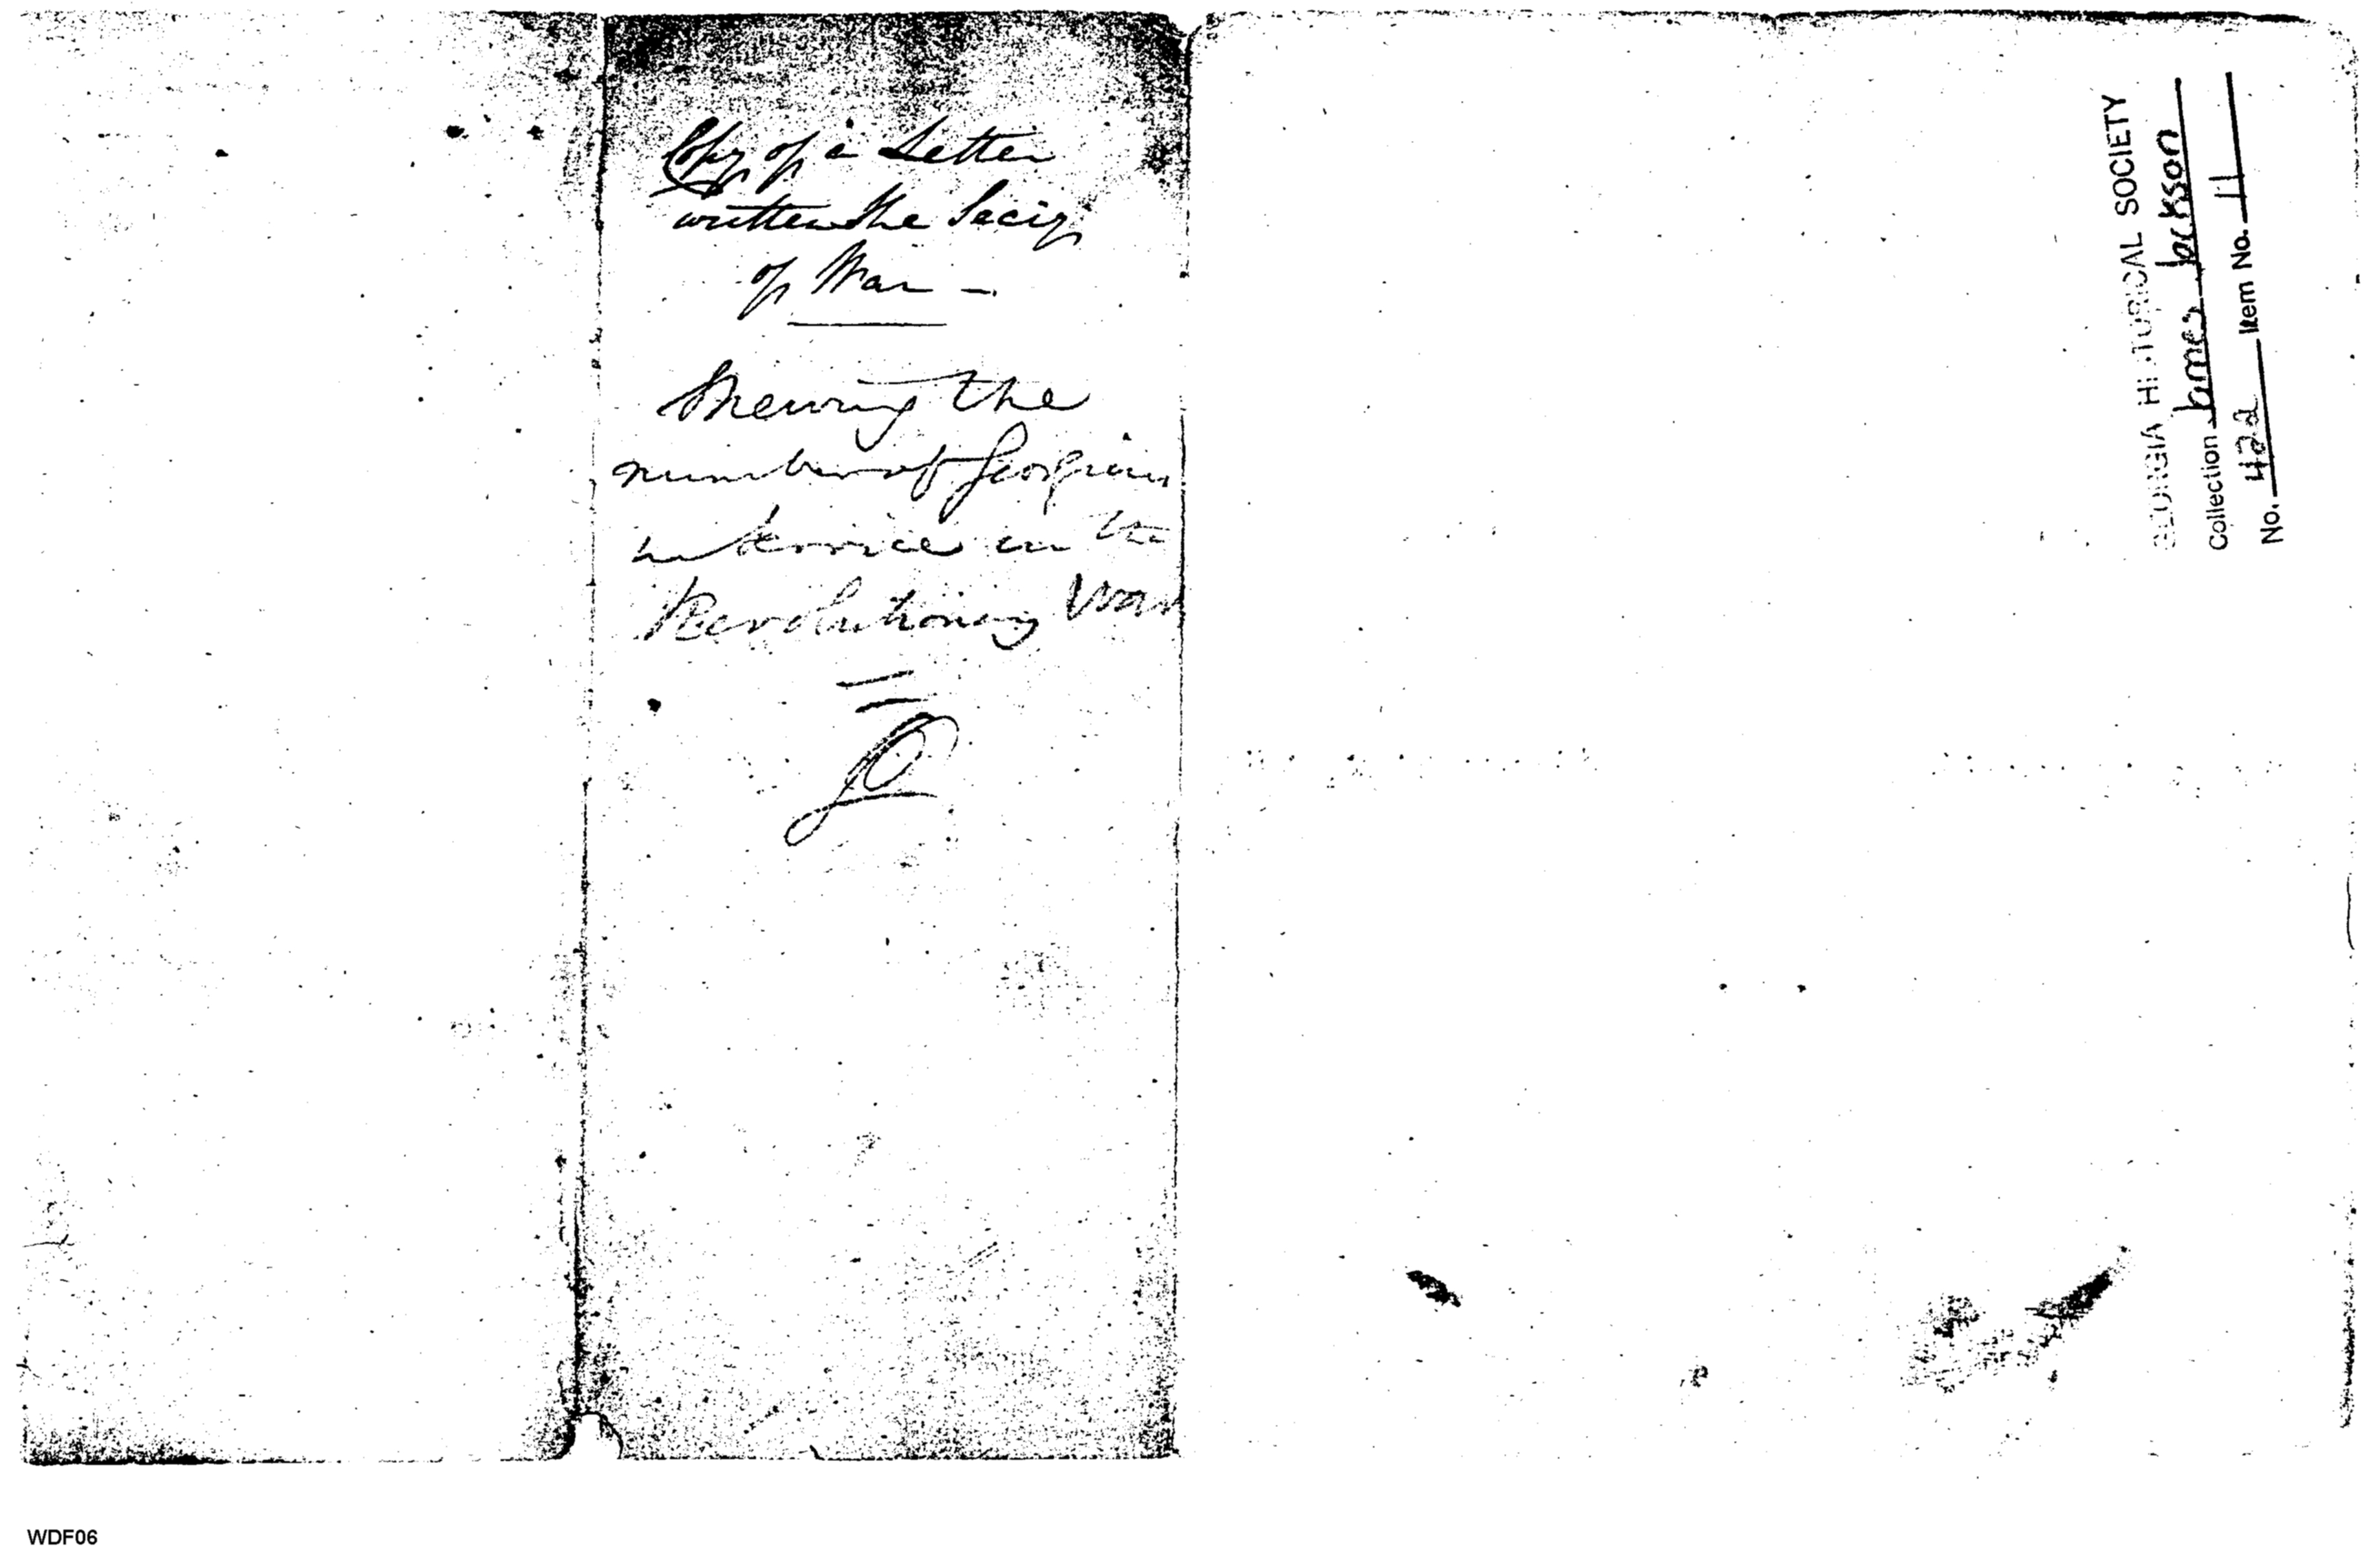 Copy of a Letter
written the Secy
of War —
Shewing the
number of Georgians
in Service in the
Revolutionary War
GEORGIA HISTORICAL SOCIETY
Collection James Jackson
No. 422 Item No. 11
WDF06